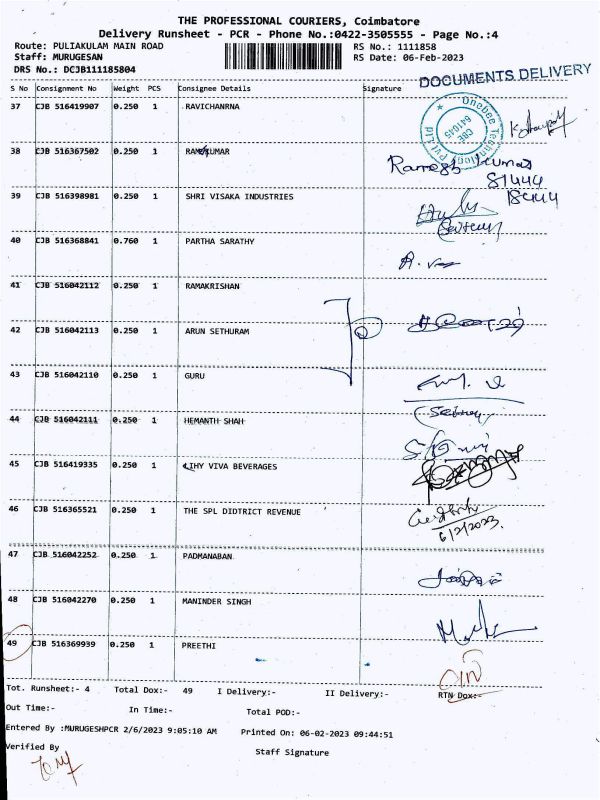 THE PROFESSIONAL COURIERS, Coimbatore
Delivery Runsheet - PCR - Phone No.:0422-3505555 - Page No.:4
Route: PULIAKULAM MAIN ROAD RS No.: 1111858
Staff: MURUGESAN RS Date: 06-Feb-2023
DRS No.: DCJB111185804
DOCUMENTS DELIVERY
S No Consignment No Weight PCS Consignee Details Signature
37 CJB 516419907 0.250 1 RAVICHANRNA
Onebee Technology Pvt Ltd
CBE
641045
38 CJB 516367502 0.250 1 RAMESKUMAR
Ramesh Kumar
81444
18444
39 CJB 516398981 0.250 1 SHRI VISAKA INDUSTRIES
40 CJB 516368841 0.760 1 PARTHA SARATHY
41 CJB 516042112 0.250 1 RAMAKRISHAN
42 CJB 516042113 0.250 1 ARUN SETHURAM
43 CJB 516042110 0.250 1 GURU
44 CJB 516042111 0.250 1 HEMANTH SHAH
45 CJB 516419335 0.250 1 LIHY VIVA BEVERAGES
46 CJB 516365521 0.250 1 THE SPL DIDTRICT REVENUE
6/2/2023
47 CJB 516042252 0.250 1 PADMANABAN
48 CJB 516042270 0.250 1 MANINDER SINGH
49 CJB 516369939 0.250 1 PREETHI
Tot. Runsheet:- 4 Total Dox:- 49 I Delivery:- II Delivery:- RTN Dox:-
Out Time:- In Time:- Total POD:-
Entered By :MURUGESHPCR 2/6/2023 9:05:10 AM Printed On: 06-02-2023 09:44:51
Verified By Staff Signature